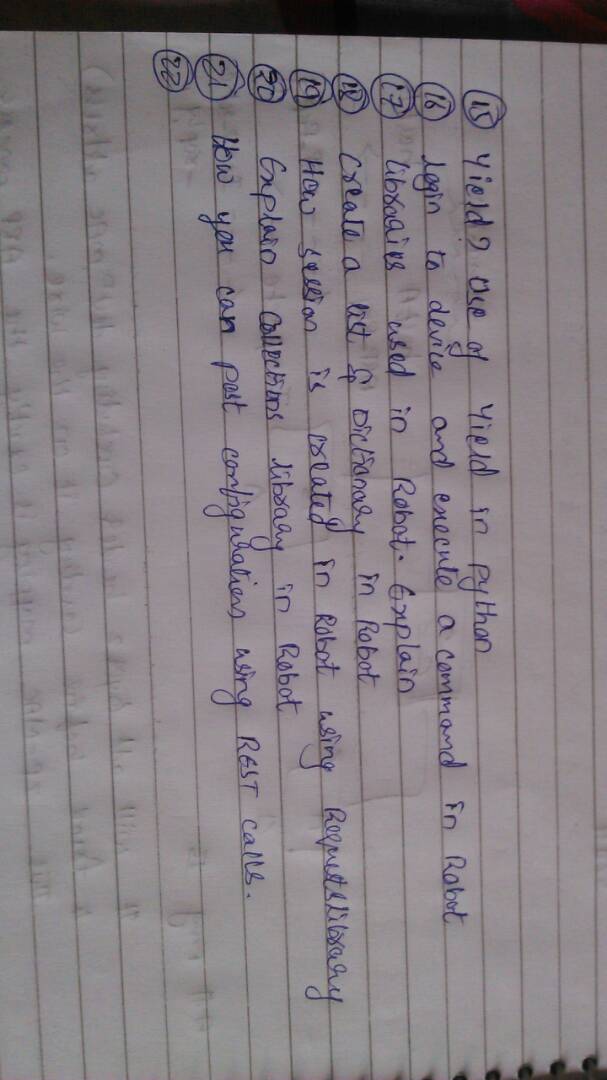 15 Yield? Use of Yield in python
16 login to device and execute a command in Robot
17 libraries used in Robot. Explain
18 Create a list & Dictionary in Robot
19 How session is created in Robot using RequestsLibrary
20 Explain Collections library in Robot
21 How you can post configurations using REST calls.
22